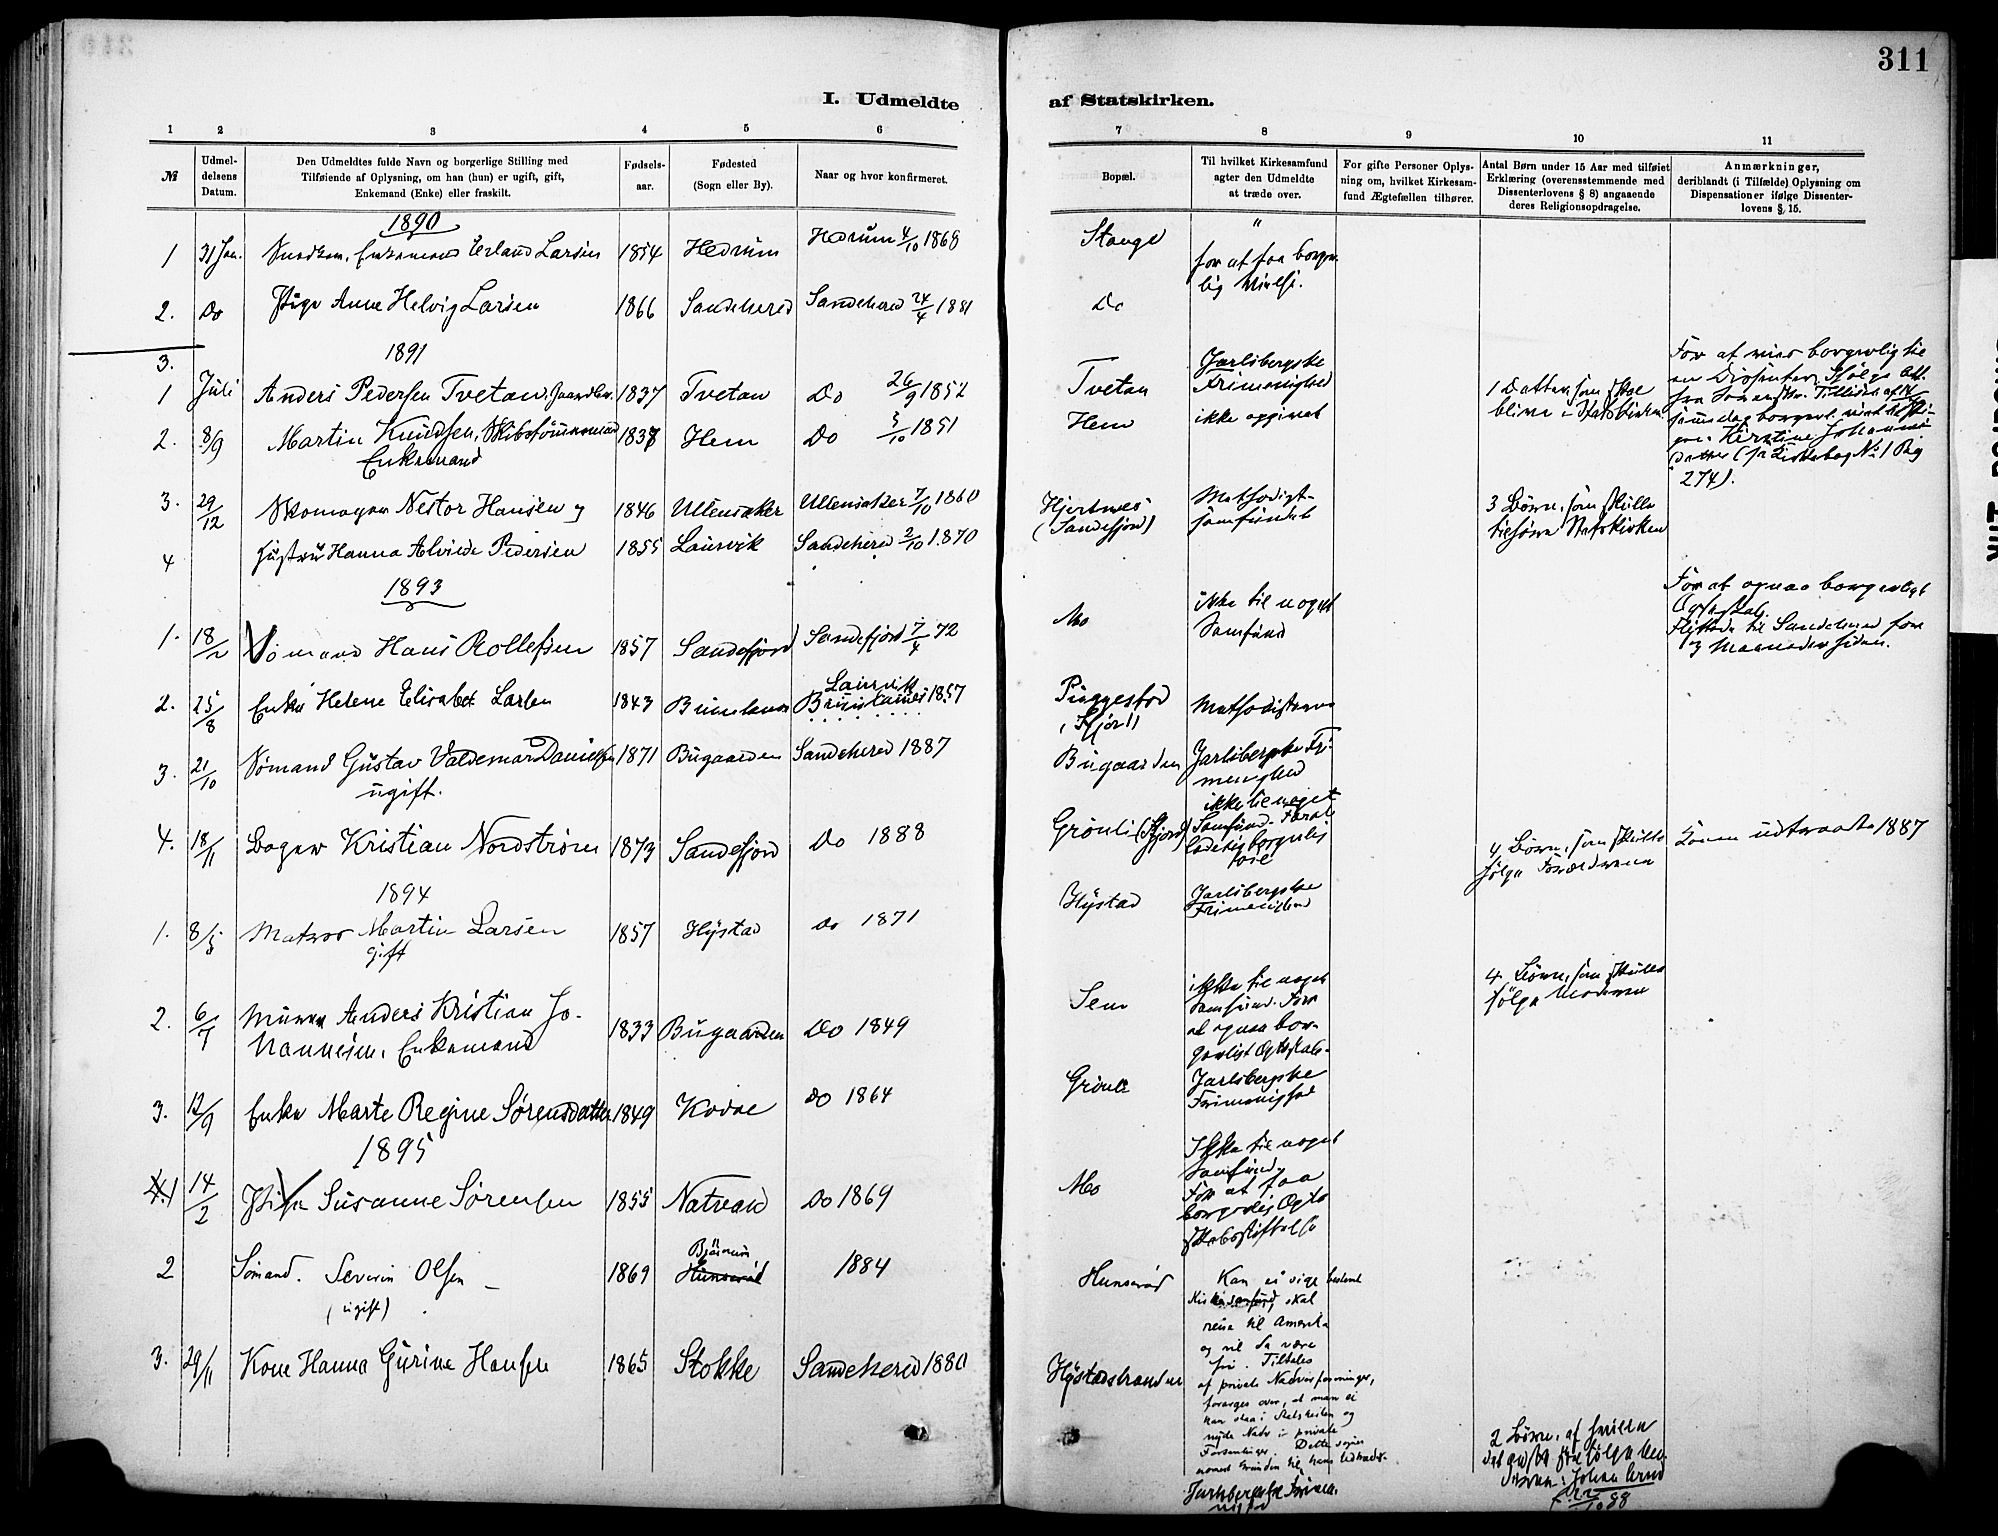 311
I. Udmeldte af Statskirken.
1 2 3 4 5 6 7 8 9 10 11
№
Udmel-
delsens
Datum.
Den Udmeldtes fulde Navn og borgerlige Stilling med
Tilføiende af Oplysning, om han (hun) er ugift, gift,
Enkemand (Enke) eller fraskilt.
Fødsels-
aar.
Fødested
(Sogn eller By).
Naar og hvor konfirmeret.
Bopæl.
Til hvilket Kirkesamfund
agter den Udmeldte
at træde over.
For gifte Personer Oplys-
ning om, hvilket Kirkesam-
fund Ægtefællen tilhører.
Antal Børn under 15 Aar med tilføiet
Erklæring (overensstemmende med
Dissenterlovens § 8) angaaende
deres Religionsopdragelse.
Anmærkninger,
deriblandt (i Tilfælde) Oplysning om
Dispensationer ifølge Dissenter-
lovens § 15.
1890
1 31 Jan. Snedker, Enkemand Erland Larsen 1854 Hedrum Hedrum 4/10 1868 Stange "
for at faa borger-
lig Vielse.
2. Do Pige Anne Helvig Larsen 1866 Sandeherred Sandeherred 24/4 1881 Do
1891
3.
1 Juli Anders Pedersen Tvetan, 1837 Tvetan Do 26/9 1852 Tvetan Jarlsbergske
Frimenighed
1 Datter, som skal
blive i Statskirken
For at vies borgerlig til
en Dissenter. Ifølge Att.
samme dag borgerl. viet til
Kirstine Johannes
datter (se Kirkebog No 1 Pag
274).
2. 8/9 Martin Knudsen, Skibstømmermand 1837 Hem Do 5/10 1851 Hem ikke opgivet
Enkemand
3. 29/12 Skomager Nestor Hansen og 1846 Ullensaker Ullensaker 7/10 1860 Hjertnes
(Sandefjord)
Methodist-
samfundet
3 Børn, som skulle
tilhøre Statskirken
4 Hustru Hanna Alvilde Pedersen 1855 Laurvik Sandeherred 2/10 1870
1893
1. 18/2 Sømand Hans Rollefsen 1857 Sandefjord Sandefjord 7/4 72 Mo ikke til noget
Samfund
For at opnaa borgerligt
Ægteskab.
Flyttede til Sandeherred for
3 Maaneder siden.
2. 25/8 Enke Helene Elisabet Larsen 1843 Brunlanes Laurvik
Brunlanes 1857
Methodisterne
3. 21/10 Sømand Gustav Valdemar Danielsen 1871 Bugaarden Sandeherred 1887 Bugaarden Jarlsbergske Fri-
menighed
ugift.
4. 18/11 Bager Kristian Nordstrøm 1873 Sandefjord Do 1888 Grønli (Sfjord) ikke til noget
Samfund.
4 Børn, som skulle
følge Forældrene
Konen udtraadte 1887
1894
1. 8/5 Matros Martin Larsen 1857 Hystad Do 1871 Hystad Jarlsbergske
Frimenighed
gift
4 Børn, som skulle
følge Moderen
2. 6/7 Murer Anders Kristian Jo-
hannesen, Enkemand 1833 Bugaarden Do 1849 Sem ikke til noget
Samfund. For
at opnaa bor-
gerligt Ægteskab.
3. 12/9 Enke Marte Regine Sørensdatter 1849 Kodal Do 1864 Grønli Jarlsbergske
Frimenighed
1895
1 14/2 Pige Susanne Sørensen 1855 Natvald Do 1869 Mo Ikke til noget
Samfund.
For at faa
borgerlig Ægte-
skabsstiftelse
2 Sømand. Severin Olsen 1869 Bjørnum
Hunserød 1884 Hunserød
(ugift)
Kan ei sige bestemt
Kirkesamfund, skal
reise til Amerika
og vil da være
fri. Tiltales
af private Nadverforeninger,
forarges over, at man ei
kan staa i Statskirken og
nyde Nadv. i private
Forsamlinger. Dette synes
nærmest Grunden til hans Udtrædelse.
3. 29/11 Kone Hanna Gurine Hansen 1865 Stokke Sandeherred 1880 Hystadstranden
Jarlsbergske Frime-
nighed
2 Børn, af hvilke
det ældste skal følge
Johan
22/10 88